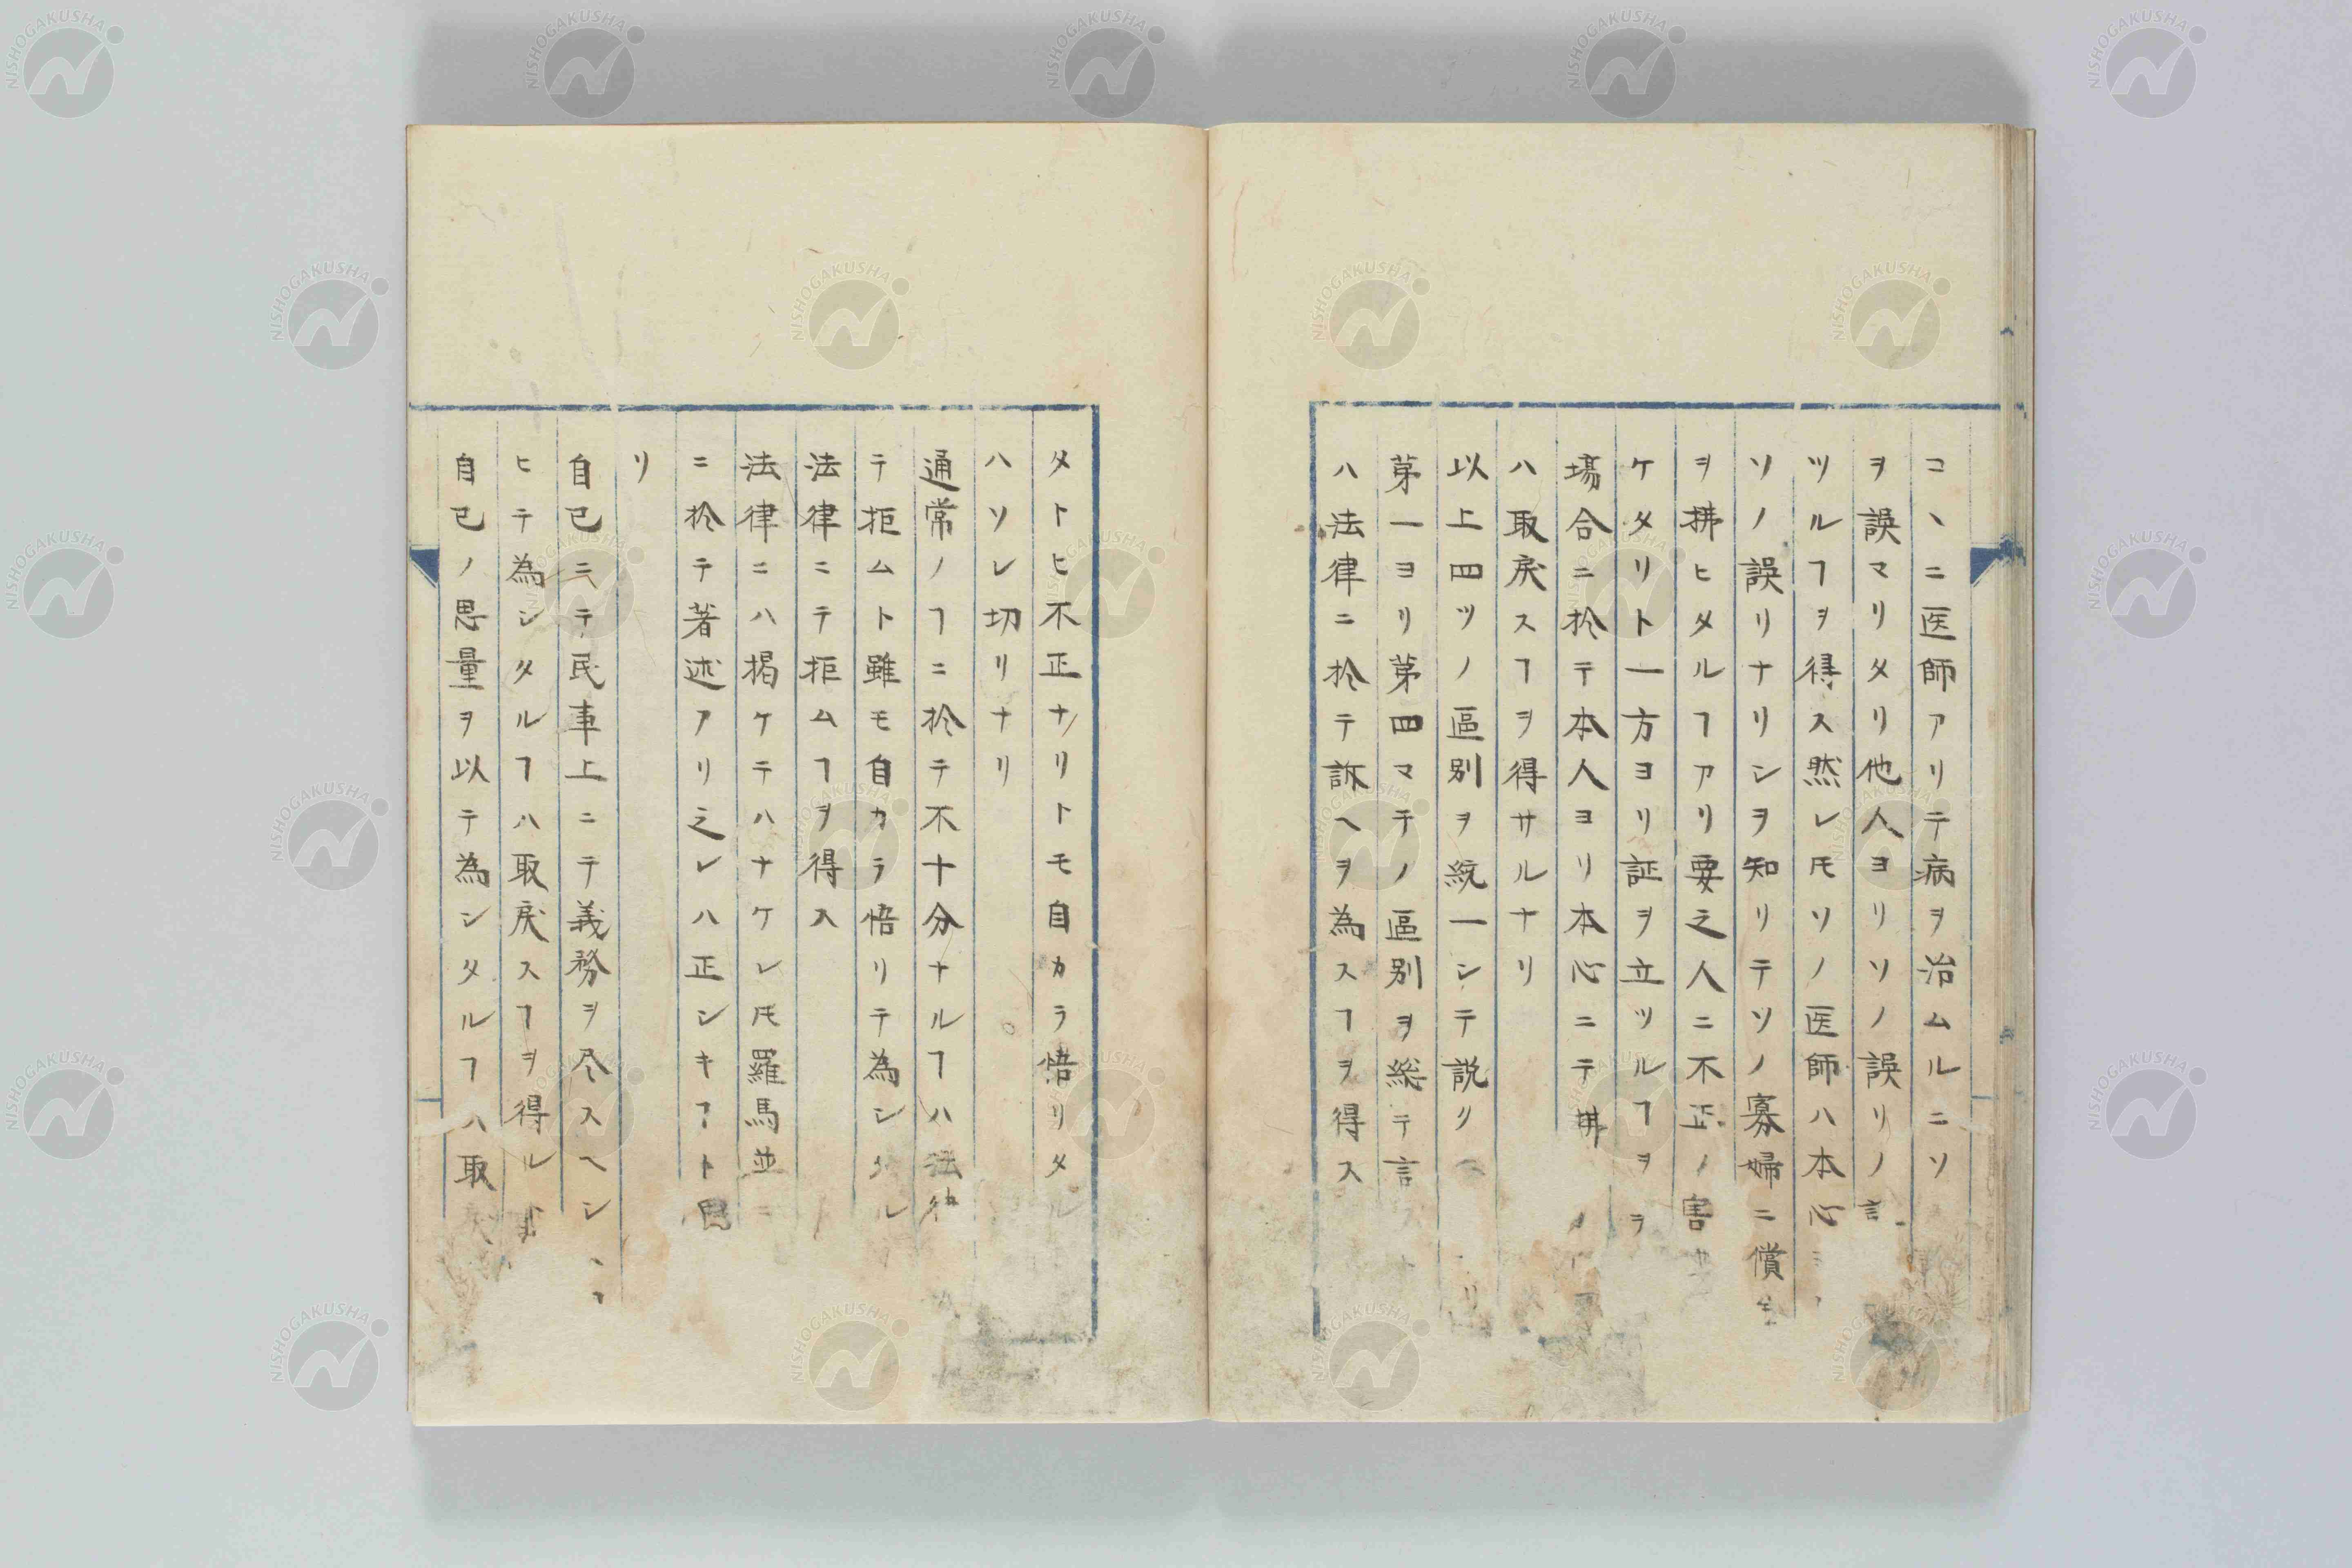 コヽニ医師アリテ病ヲ治ムルニソ
ヲ誤マリタリ他人ヨリソノ誤リノ言
ツルヿヲ得ス然レ𪜈ソノ医師ハ本心
ソノ誤リナリシヲ知リテソノ寡婦ニ償
ヲ拂ヒタルヿアリ要之人ニ不正ノ害
ケタリト一方ヨリ証ヲ立ツルヿヲ
塲合ニ於テ本人ヨリ本心ニテ拂
ハ取戻スヿヲ得サルナリ
以上四ツノ區别ヲ統一シテ説リ
苐一ヨリ第四マテノ區别ヲ総テ言
ハ法律ニ於テ訴ヘヲ為スヿヲ得ス
タトヒ不正ナリトモ自カラ悟リタル
ハソレ切リナリ
通常ノヿニ於テ不十分ナルヿハ法律
テ拒ムト雖モ自カラ悟リテ為シタル
法律ニテ拒ムヿヲ得ス
法律ニハ掲ケテハナケレ𪜈羅馬並ニ
ニ於テ著述アリ之レハ正シキヿト
リ
自己ニテ民事上ニテ義務ヲ尽スヘシ
ヒテ為シタルヿハ取戻スヿヲ得ル
自己ノ思量ヲ以テ為シタルヿハ取
NISHOGAKUSHA